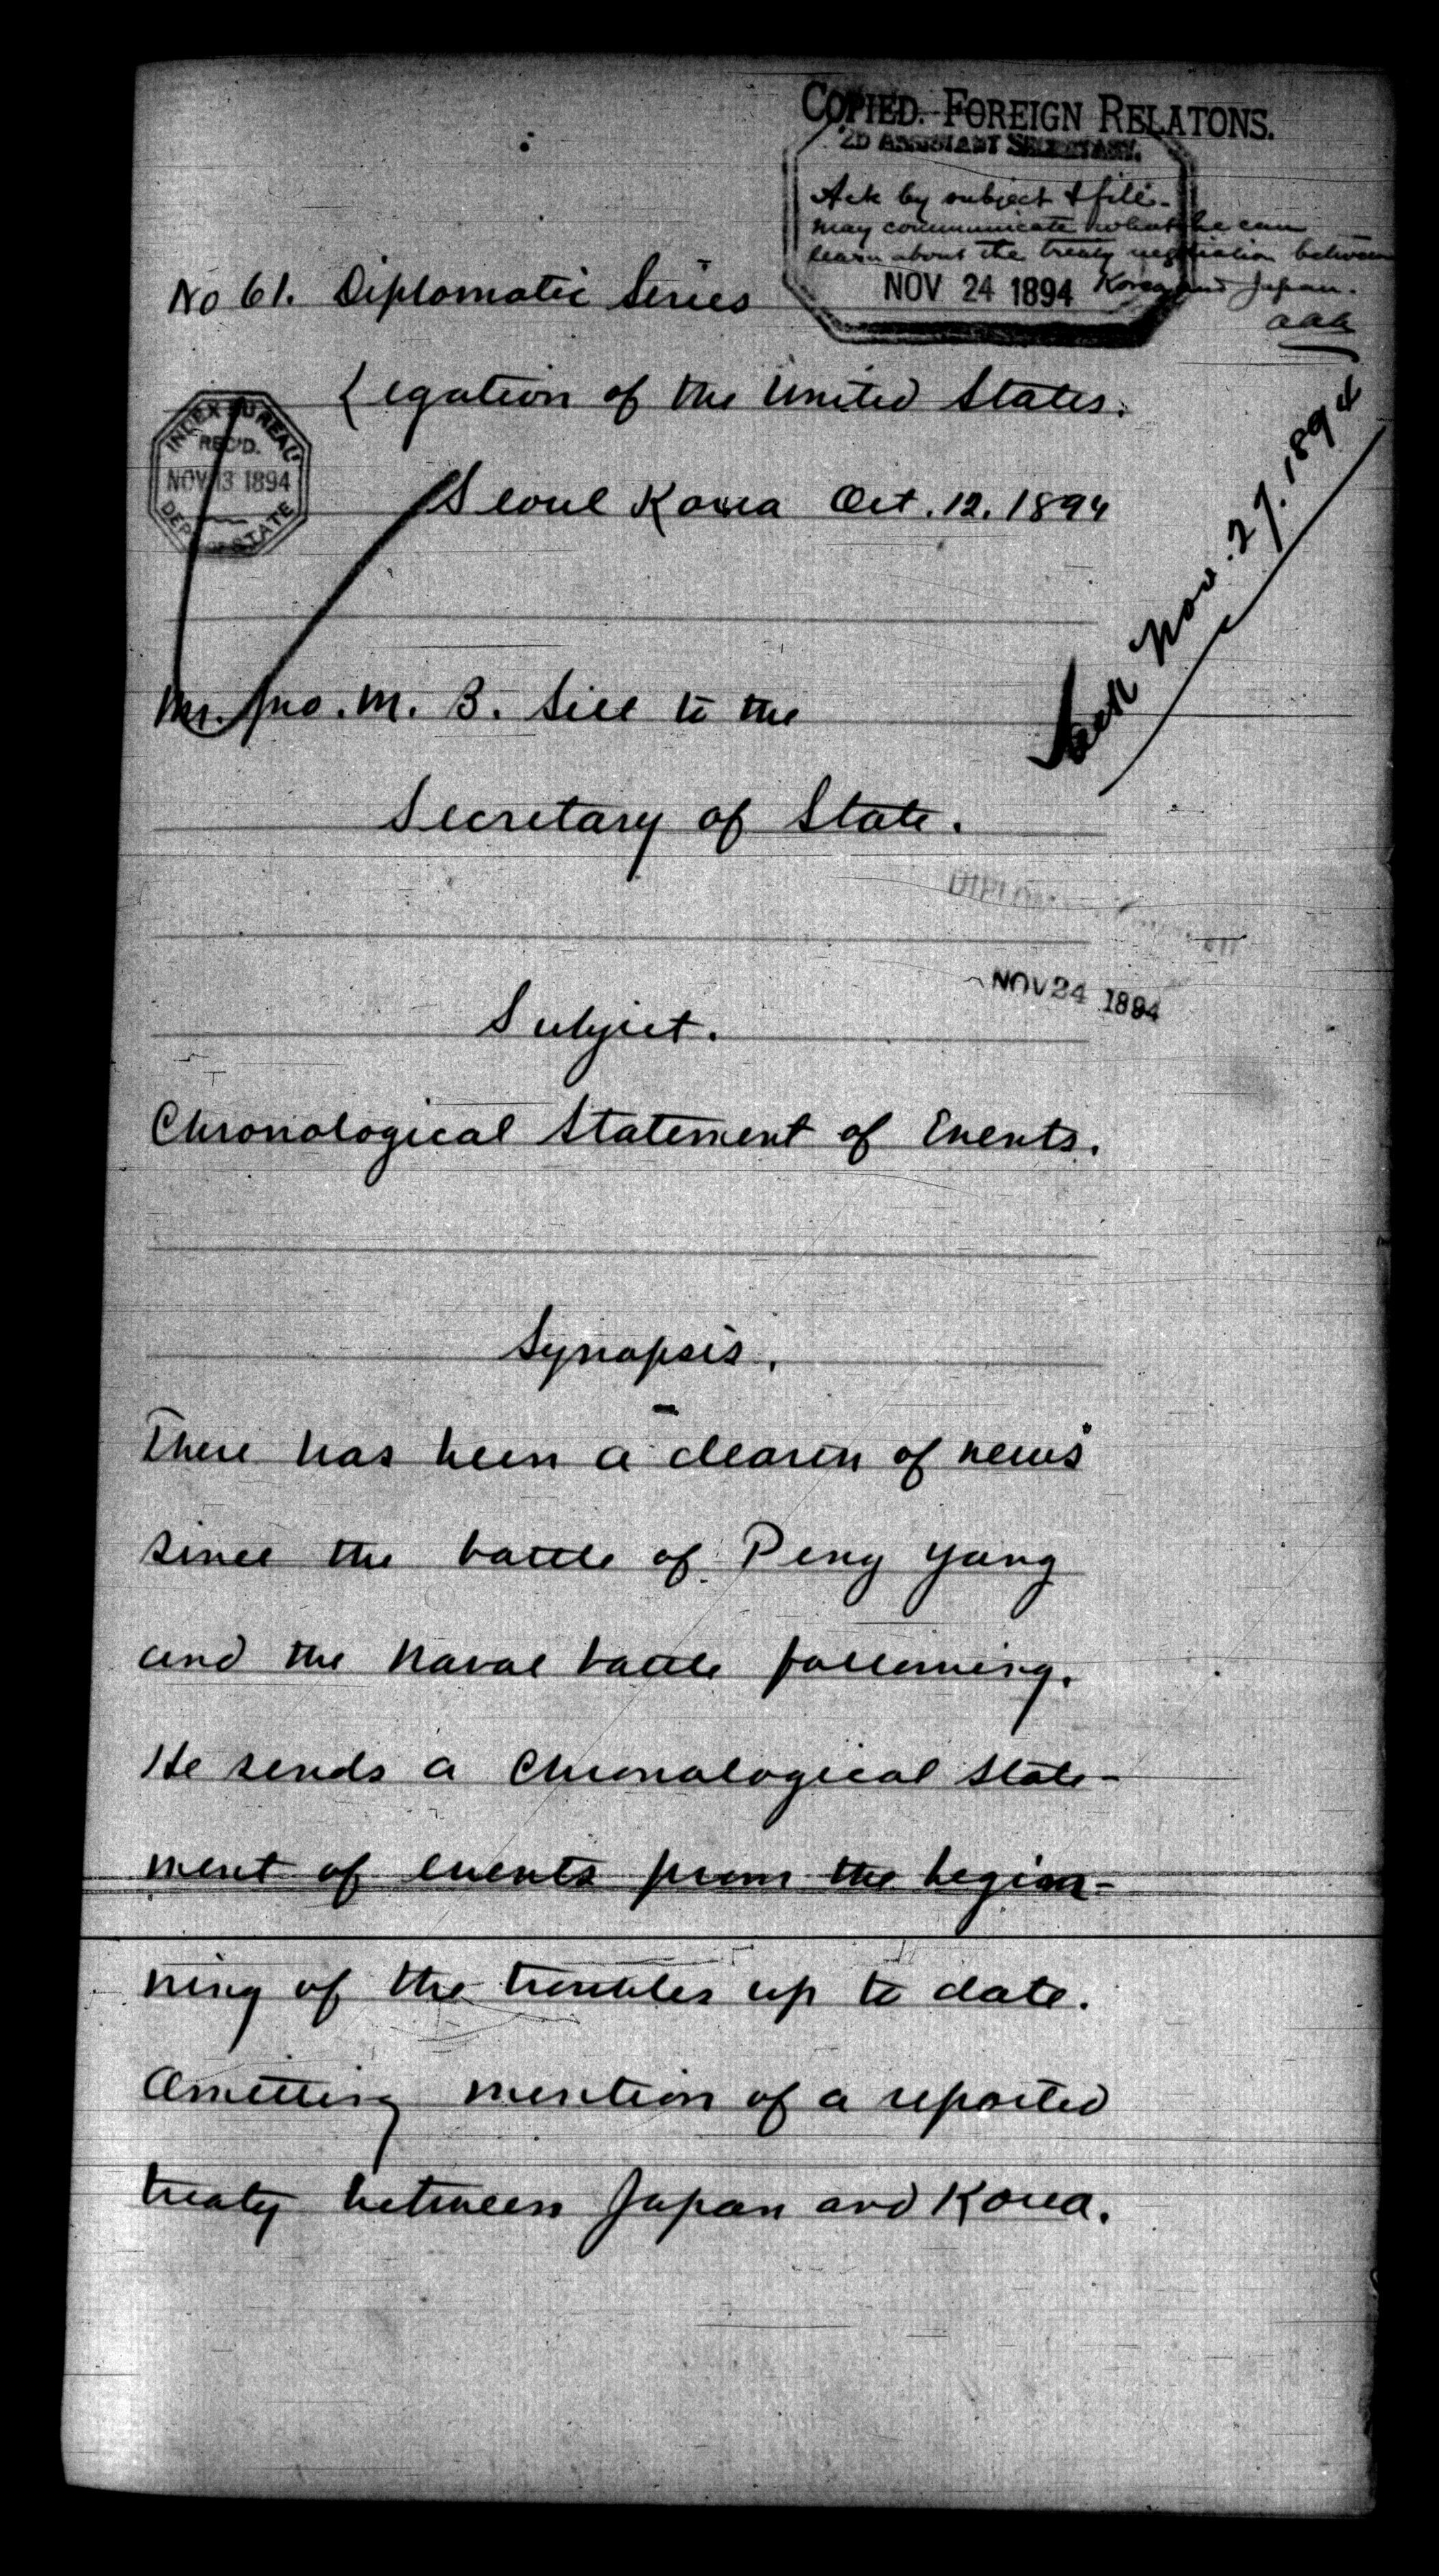 COPIED. FOREIGN RELATONS.
2D ASSISTANT SECRETARY.
Ack by subject & file.
May communicate what he can
learn about the treaty negotiation between
Korea and Japan.
NOV 24 1894
aaa
No 61. Diplomatic Series
Legation of the United States.
INDEX BUREAU
REC'D.
NOV 13 1894
DEP'T OF STATE
Seoul Korea Oct. 12. 1894
Ack Nov. 27. 1894
Mr. Jno. M. B. Sill to the
Secretary of State.
NOV 24 1894
Subject.
Chronological Statement of Events.
Synopsis.
There has been a dearth of news
since the battle of Peng Yang
and the Naval battle following.
He sends a Chronological state-
ment of events from the begin-
ning of the troubles up to date.
Omitting mention of a reported
treaty between Japan and Korea.